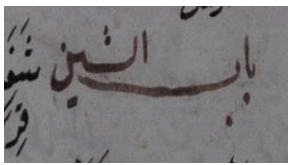 باب الشين